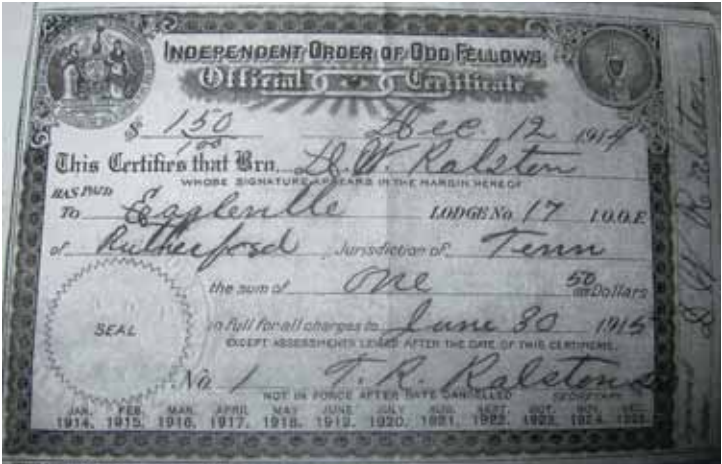 INDEPENDENT ORDER OF ODD FELLOWS
Official Certificate
$ 1 50/100 Dec. 12 1914
This Certifies that Bro. D. W. Ralston
WHOSE SIGNATURE APPEARS IN THE MARGIN HEREOF
HAS PAID
To Eagleville LODGE No. 17 I.O.O.F
of Rutherford Jurisdiction of Tenn
the sum of One 50/100 Dollars
SEAL
in full for all charges to June 30 1915
EXCEPT ASSESSMENTS LEVIED AFTER THE DATE OF THIS CERTIFICATE.
No. 1 T. R. Ralston
NOT IN FORCE AFTER DATE CANCELLED SECRETARY
JAN. FEB. MAR. APRIL MAY JUNE JULY AUG. SEPT. OCT. NOV. DEC.
1914. 1915. 1916. 1917. 1918. 1919. 1920. 1921. 1922. 1923. 1924. 1925.
Ralston